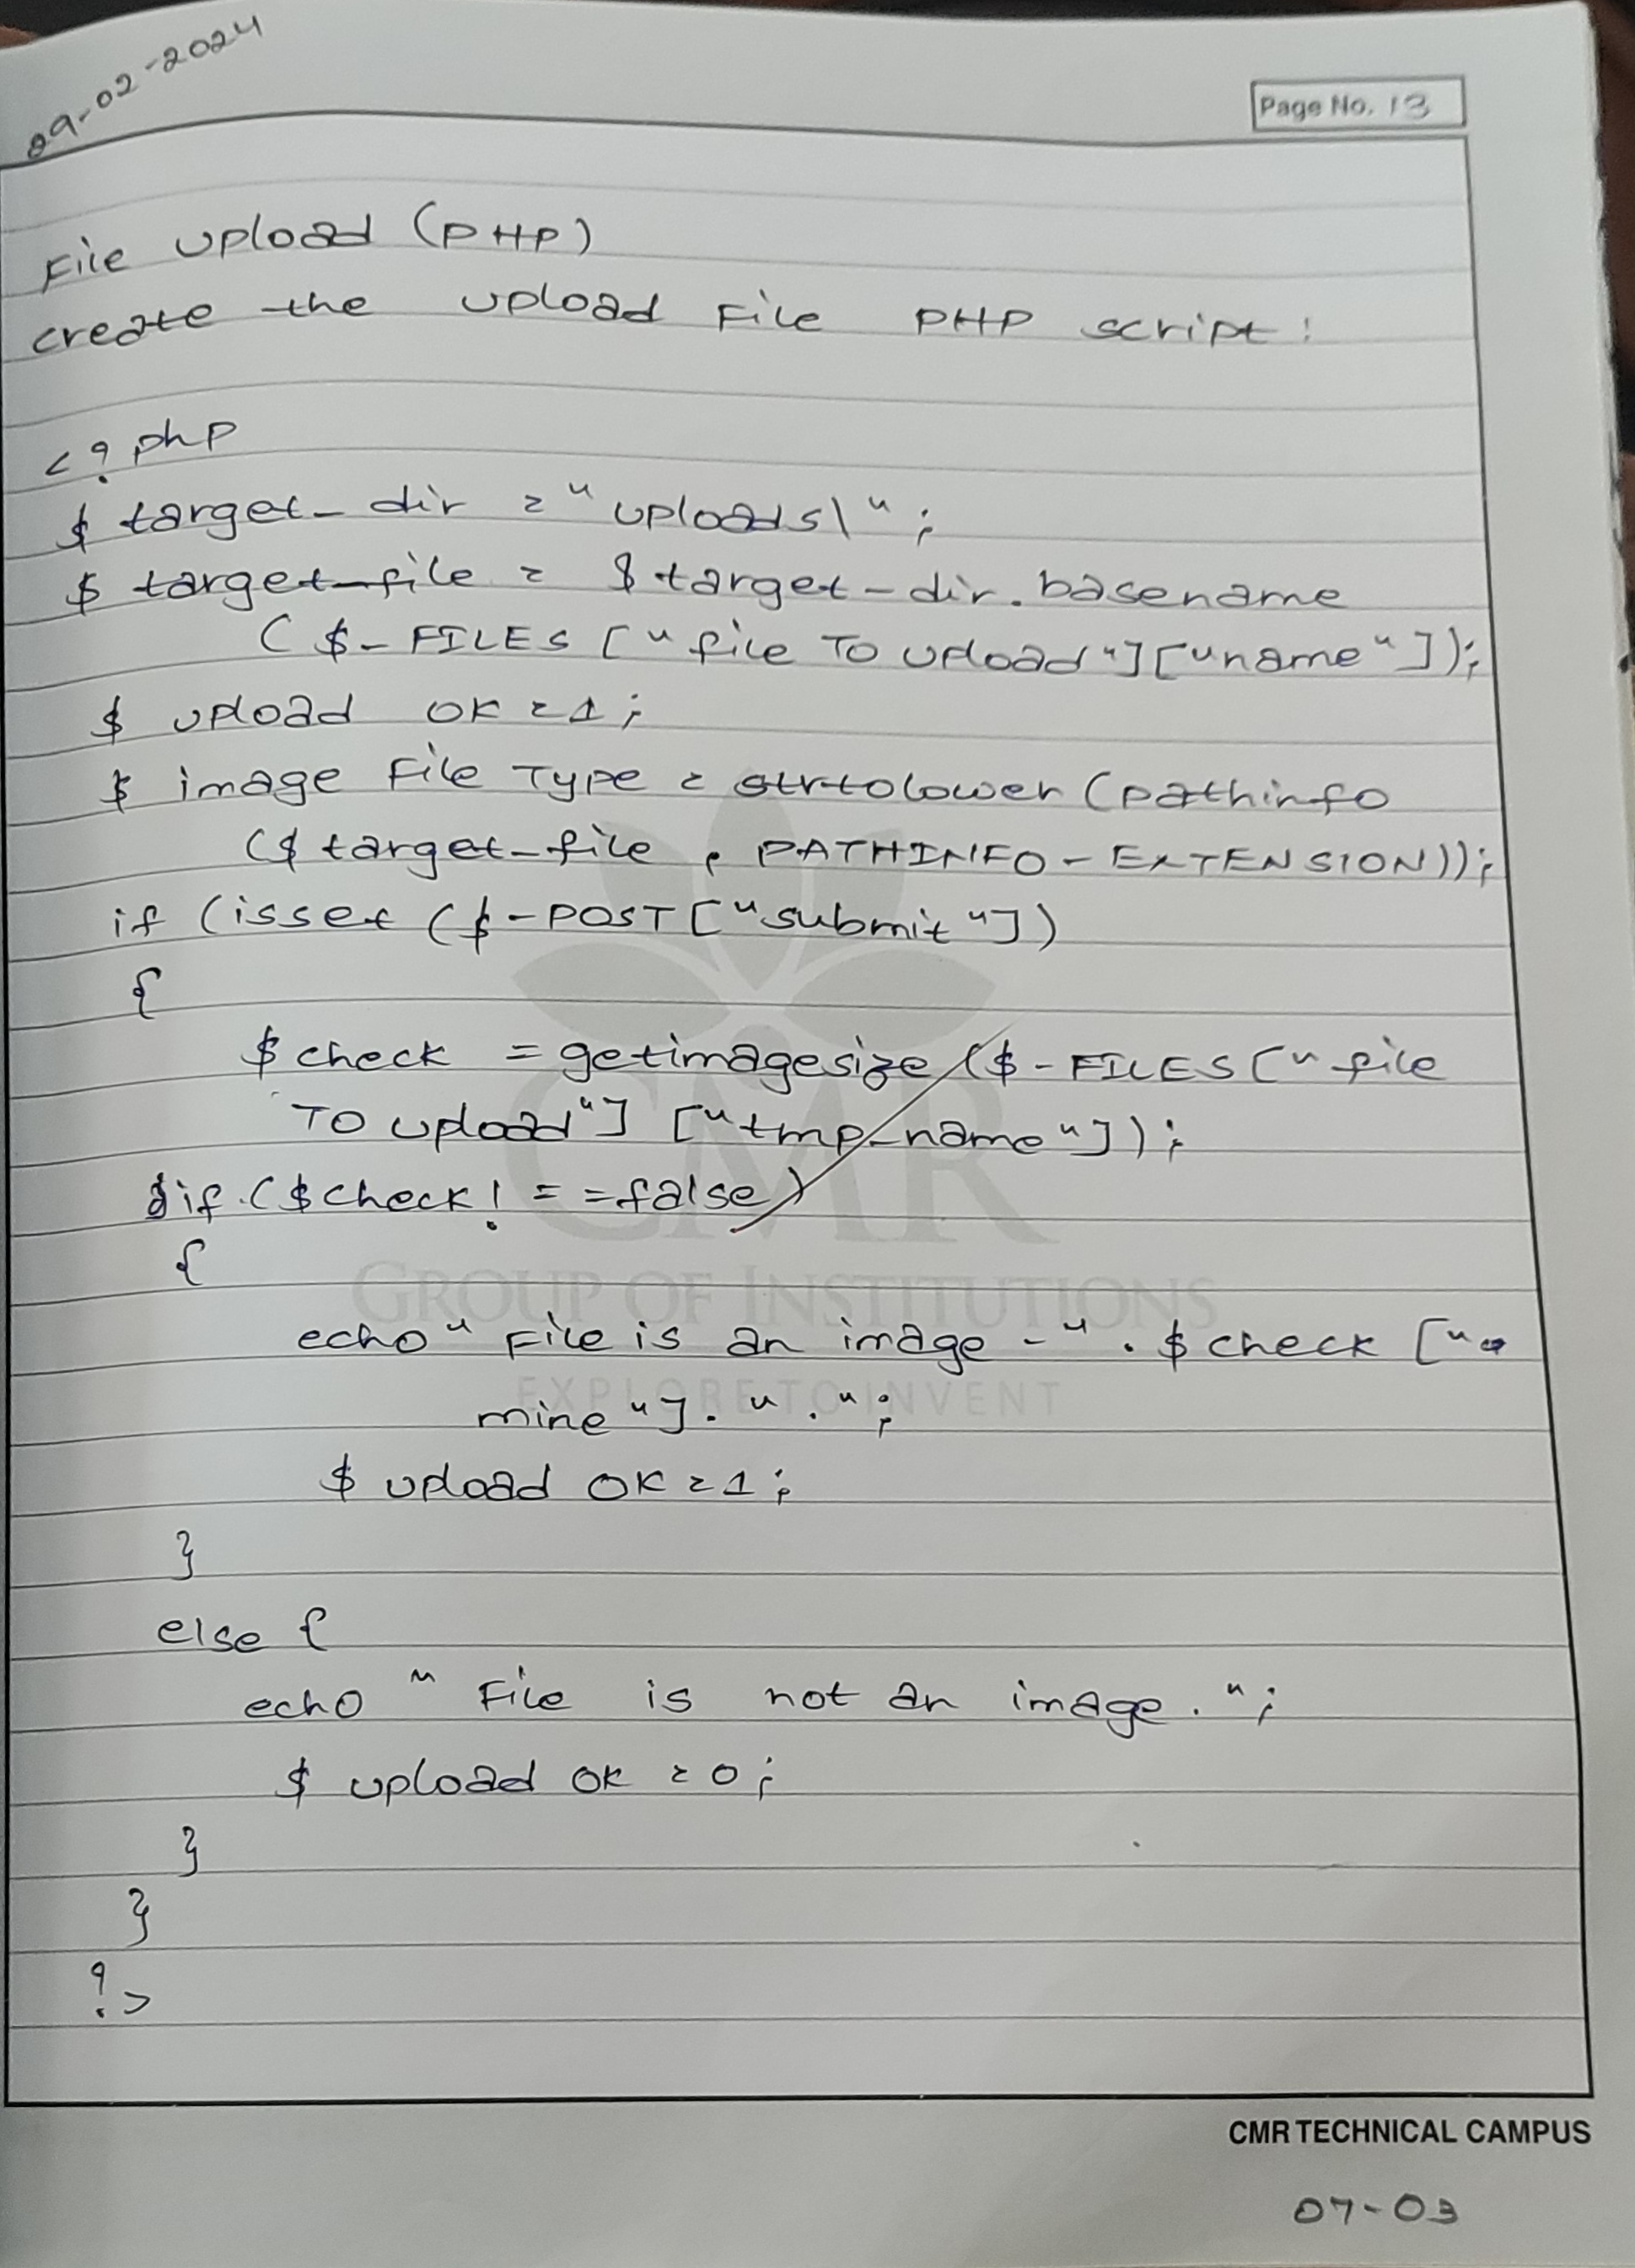 09-02-2024
Page No. 13
File upload (PHP)
create the upload File PHP script:
<?php
$ target_dir = "uploads\";
$ target_file = $target_dir.basename
($_FILES ["file To upload"]["name"]);
$ upload OK = 1;
$ image File Type = strtolower (pathinfo
($ target_file, PATHINFO_EXTENSION));
if (isset ($_POST ["submit"])
{
$check = getimagesize ($_FILES ["file
TO upload"] ["tmp_name"]);
if ($check! == false)
{
echo " File is an image - " . $ check ["
mine"]. " . ";
$ upload OK = 1;
}
else {
echo " File is not an image. ";
$ upload OK = 0;
}
}
?>
CMR
GROUP OF INSTITUTIONS
EXPLORE TO INVENT
CMR TECHNICAL CAMPUS
07-03